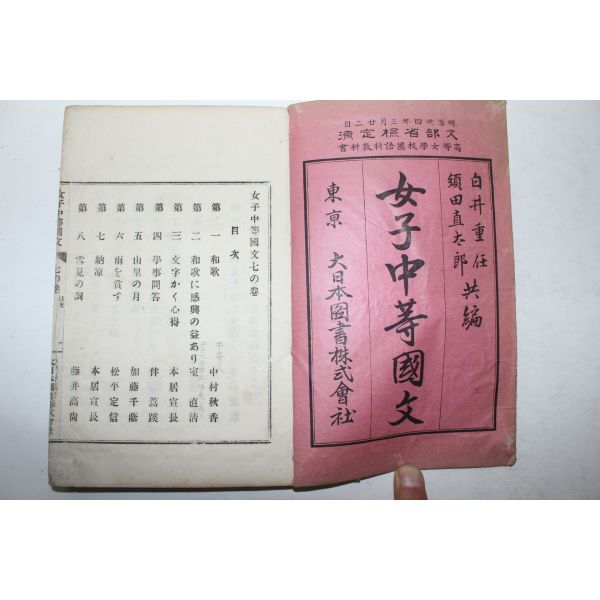 明治卅四年三月廿二日
文部省檢定濟
高等女學校國語科教科書
白井重任
須田直太郎 共編
女子中等國文
東京 大日本圖書株式會社
女子中等國文七の卷
目次
第一 和歌 中村秋香
第二 和歌に感興の益あり 室直清
第三 文字かく心得 本居宣長
第四 學事問答 伴蒿蹊
第五 山里の月 加藤千蔭
第六 雨を賞す 松平定信
第七 納凉 本居宣長
第八 雪見の詞 藤井高尙
女子中等國文 七の卷 目次 一